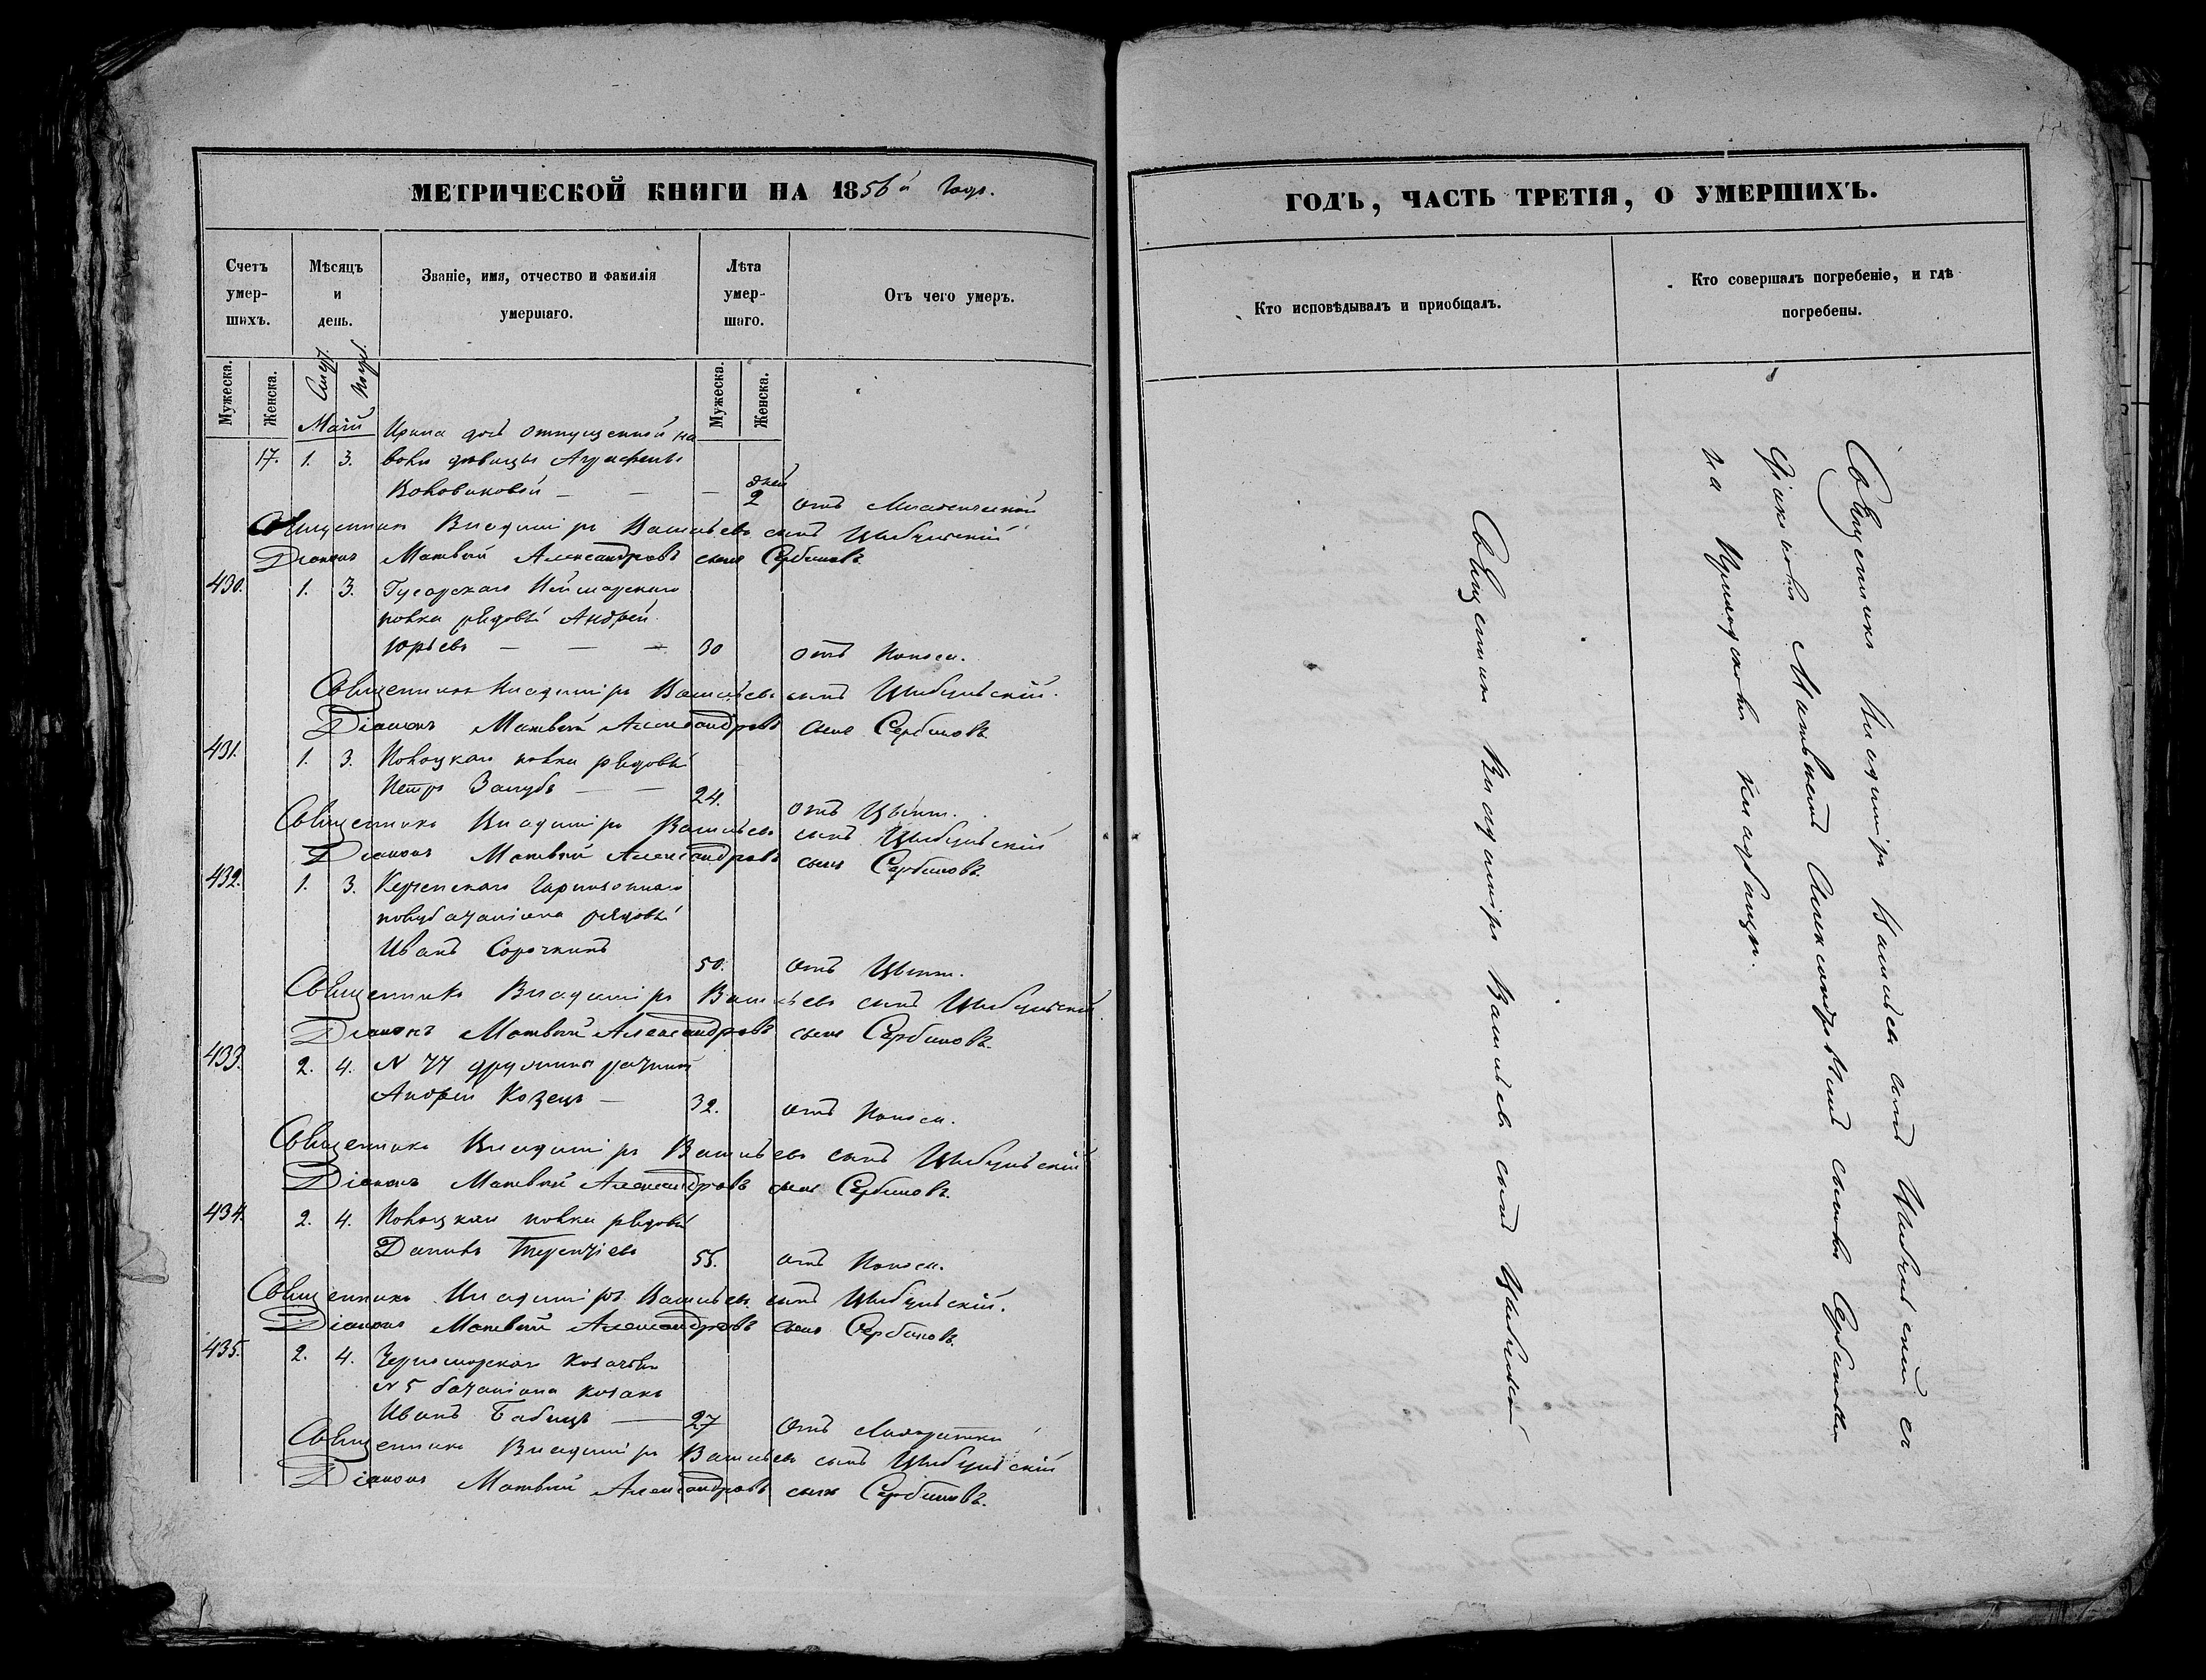 МЕТРИЧЕСКОЙ КНИГИ НА 1856й Годъ.
Счетъ умер-шихъ.
Мѣсяцъ и день.
Званіе, имя, отчество и фамилія умершаго.
Лѣта умер-шаго.
Отъ чего умеръ.
Мужеска.
Женска.
Мужеска.
Женска.
Маій
Ирина дочь отпущенной на
17. 1. 3. волю дѣвицы Агрифены
дней
2 отъ Младенческой
Священникъ Владиміръ Васильевъ сынъ Цыбульскій
Діаконъ Матвѣй Александровъ сынъ Сербиновъ
430. 1. 3. Гусарскаго
полка рядовый Андрей
Юрьевъ — — — 30 отъ Поноса.
Священникъ Владиміръ Васильевъ сынъ Цыбульскій.
Діаконъ Матвѣй Александровъ сынъ Сербиновъ
431. 1. 3. Полоцкаго полка рядовый
Петръ — — 24. отъ Цынги.
Священникъ Владиміръ Васильевъ сынъ Цыбульскій
Діаконъ Матвѣй Александровъ сынъ Сербиновъ
432. 1. 3. Керченскаго Гарнизоннаго
полубаталіона рядовый
Иванъ Сорочкинъ 50. отъ Цынги.
Священникъ Владиміръ Васильевъ сынъ Цыбульскій.
Діаконъ Матвѣй Александровъ сынъ Сербиновъ.
433. 2. 4. N 77 дружины ратникъ
Андрей Козецъ — 32. отъ Поноса.
Священникъ Владиміръ Васильевъ сынъ Цыбульскій
Діаконъ Матвѣй Александровъ сынъ Сербиновъ.
434. 2. 4. Полоцкаго полка рядовый
Данилъ Терентіевъ 55. отъ Поноса.
Священникъ Владиміръ Васильевъ сынъ Цыбульскій.
Діаконъ Матвѣй Александровъ сынъ Сербиновъ.
435. 2. 4. Черноморскаго Козачьяго
N 5 баталіона козакъ
Иванъ Бабецъ — 27 отъ Лихорадки
Священникъ Владиміръ Васильевъ сынъ Цыбульскій
Діаконъ Матвѣй Александровъ сынъ Сербиновъ.
ГОДЪ, ЧАСТЬ ТРЕТІЯ, О УМЕРШИХЪ.
Кто исповѣдывалъ и пріобщалъ.
Кто совершалъ погребеніе, и гдѣ погребены.
Священникъ Владиміръ Васильевъ сынъ Цыбульскій
Священникъ Владиміръ Васильевъ сынъ Цыбульскій съ
Діакономъ Матвѣемъ Александровымъ сыномъ Сербиновымъ
на кладбищѣ.